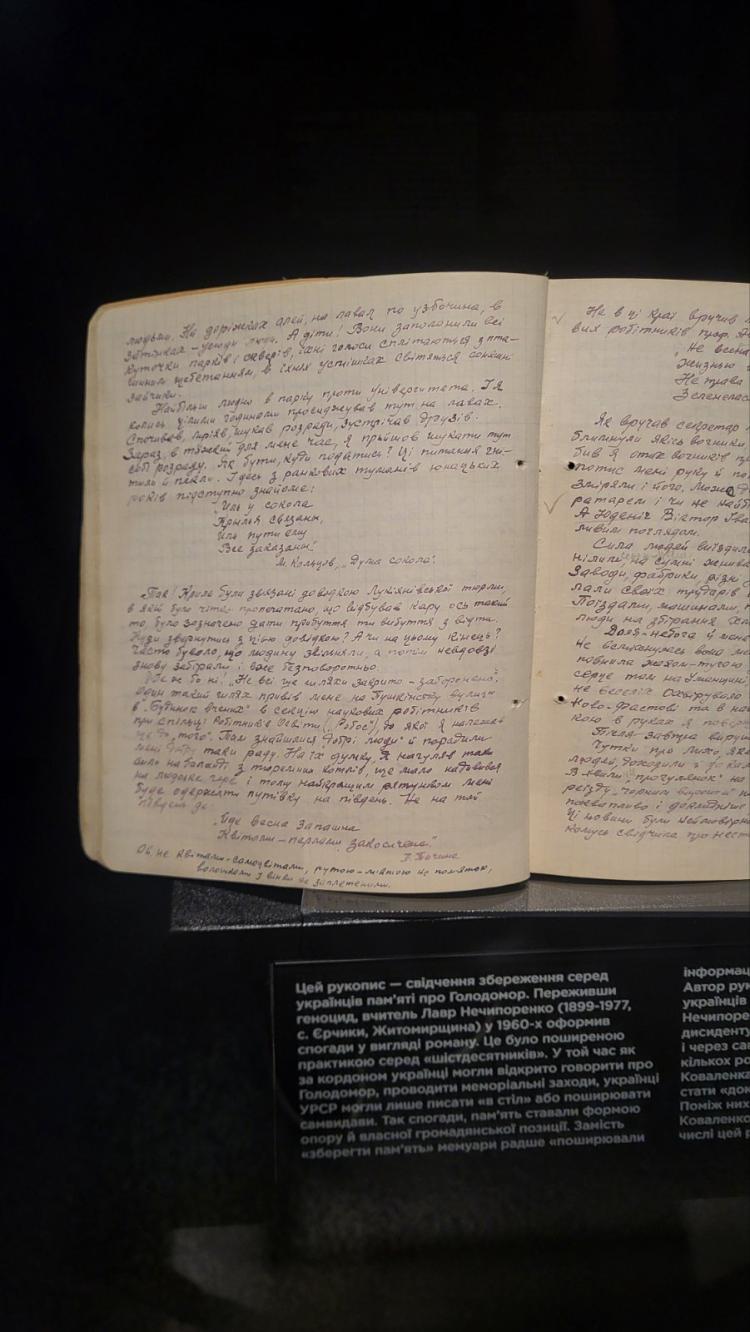 людьми. На доріжках алей, на лавах по узбіччях, в
затінках – усюди люди. А діти! Вони заполонили всі
куточки парків і скверів, їхні голоси сплітаються з пта-
шиним щебетанням, в їхніх усмішках світяться сонячні
зайчики.
Найбільш людно в парку проти університета. І я
колись цілими годинами просиджував тут на лавах.
Спочивав, мріяв, шукав розради, зустрічав друзів.
Зараз, в тяжкий для мене час, я прийшов шукати тут
собі розраду. Як бути, куди податись? Ці питання гні-
тили й пекли. І десь з ранкових туманів юнацьких
років підступно знайоме:
"Иль у сокола
Крылья связаны,
Иль пути ему
Все заказаны?"
М. Кольцов, "Дума сокола".
Так! Крила були звязані довідкою Лукянівської тюрми,
в якій було чітко пропечатано, що відбував кару ось такий
то, було зазначено дати прибуття та вибуття з відти.
Куди звернутись з цією довідкою? А чи на цьому кінець?
Часто бувало, що людину звільняли, а потім невдовзі
знову забирали і вже безповоротньо.
не всі ще шляхи закрито – заборонено".
Один такий шлях привів мене на Пушкінську вулицю
в "Будинок вчених" в секцію наукових робітників
при спілці Робітників Освіти ("Робос"), до якої я належав
ще до "того". Там знайшлися добрі люди й порадили
мені добру таки раду. На їх думку, я нагуляв таке
сило на баланді з тюремних котлів, що мало надавався
на людське і тому найкращим рятунком мені
буде одержати путівку на південь. Не на той
південь де
"Йде весна запашна
Квітами-перлами закосичена."
П. Тичина
Ой, не квітами-самоцвітами, рутою-мятою не помятою,
волошками з вінки не заплетеними.
Не в ці краї вручив
вих робітників проф.
"Не весна
Жизнью
Не трава
Зеленелась
Як вручав секретар
блимнули якісь вогники,
бив я отих вогників
потис мені руку й
зміряли і його. Може
ратарем і чи не найб
А Юденіч Віктор Іва
ливим поглядом.
Сила людей виїздила
на сумні жнива
Заводи, фабрики, різні
лали своїх ударів
Поїздами, машинами,
люди на збирання
Доля-небога й мене
Не великанулась вона
повнила жалем-тугою
серце том на Уманщині
не веселі
Ново-Фастові та в
кою в руках я повер
Після завтра виру
Чутки про лихо, яке
людей, доходили з
В хвилі "прогулянок" на
резду "чорним вороном"
посвотливо і докладніше
Ці новини були неймовірні
комусь свідчика про
Цей рукопис — свідчення збереження серед
українців пам'яті про Голодомор. Переживши
геноцид, вчитель Лавр Нечипоренко (1899-1977,
с. Єрчики, Житомирщина) у 1960-х оформив
спогади у вигляді роману. Це було поширеною
практикою серед «шістдесятників». У той час як
за кордоном українці могли відкрито говорити про
Голодомор, проводити меморіальні заходи, українці
УРСР могли лише писати «в стіл» або поширювати
самвидави. Так спогади, пам'ять ставали формою
опору й власної громадянської позиції. Замість
«зберегти пам'ять» мемуари радше «поширювали
інформац
Автор рук
українців
Нечипоре
дисиденту
і через са
кількох ро
Коваленка
стати «док
Поміж них
Коваленко
числі цей р